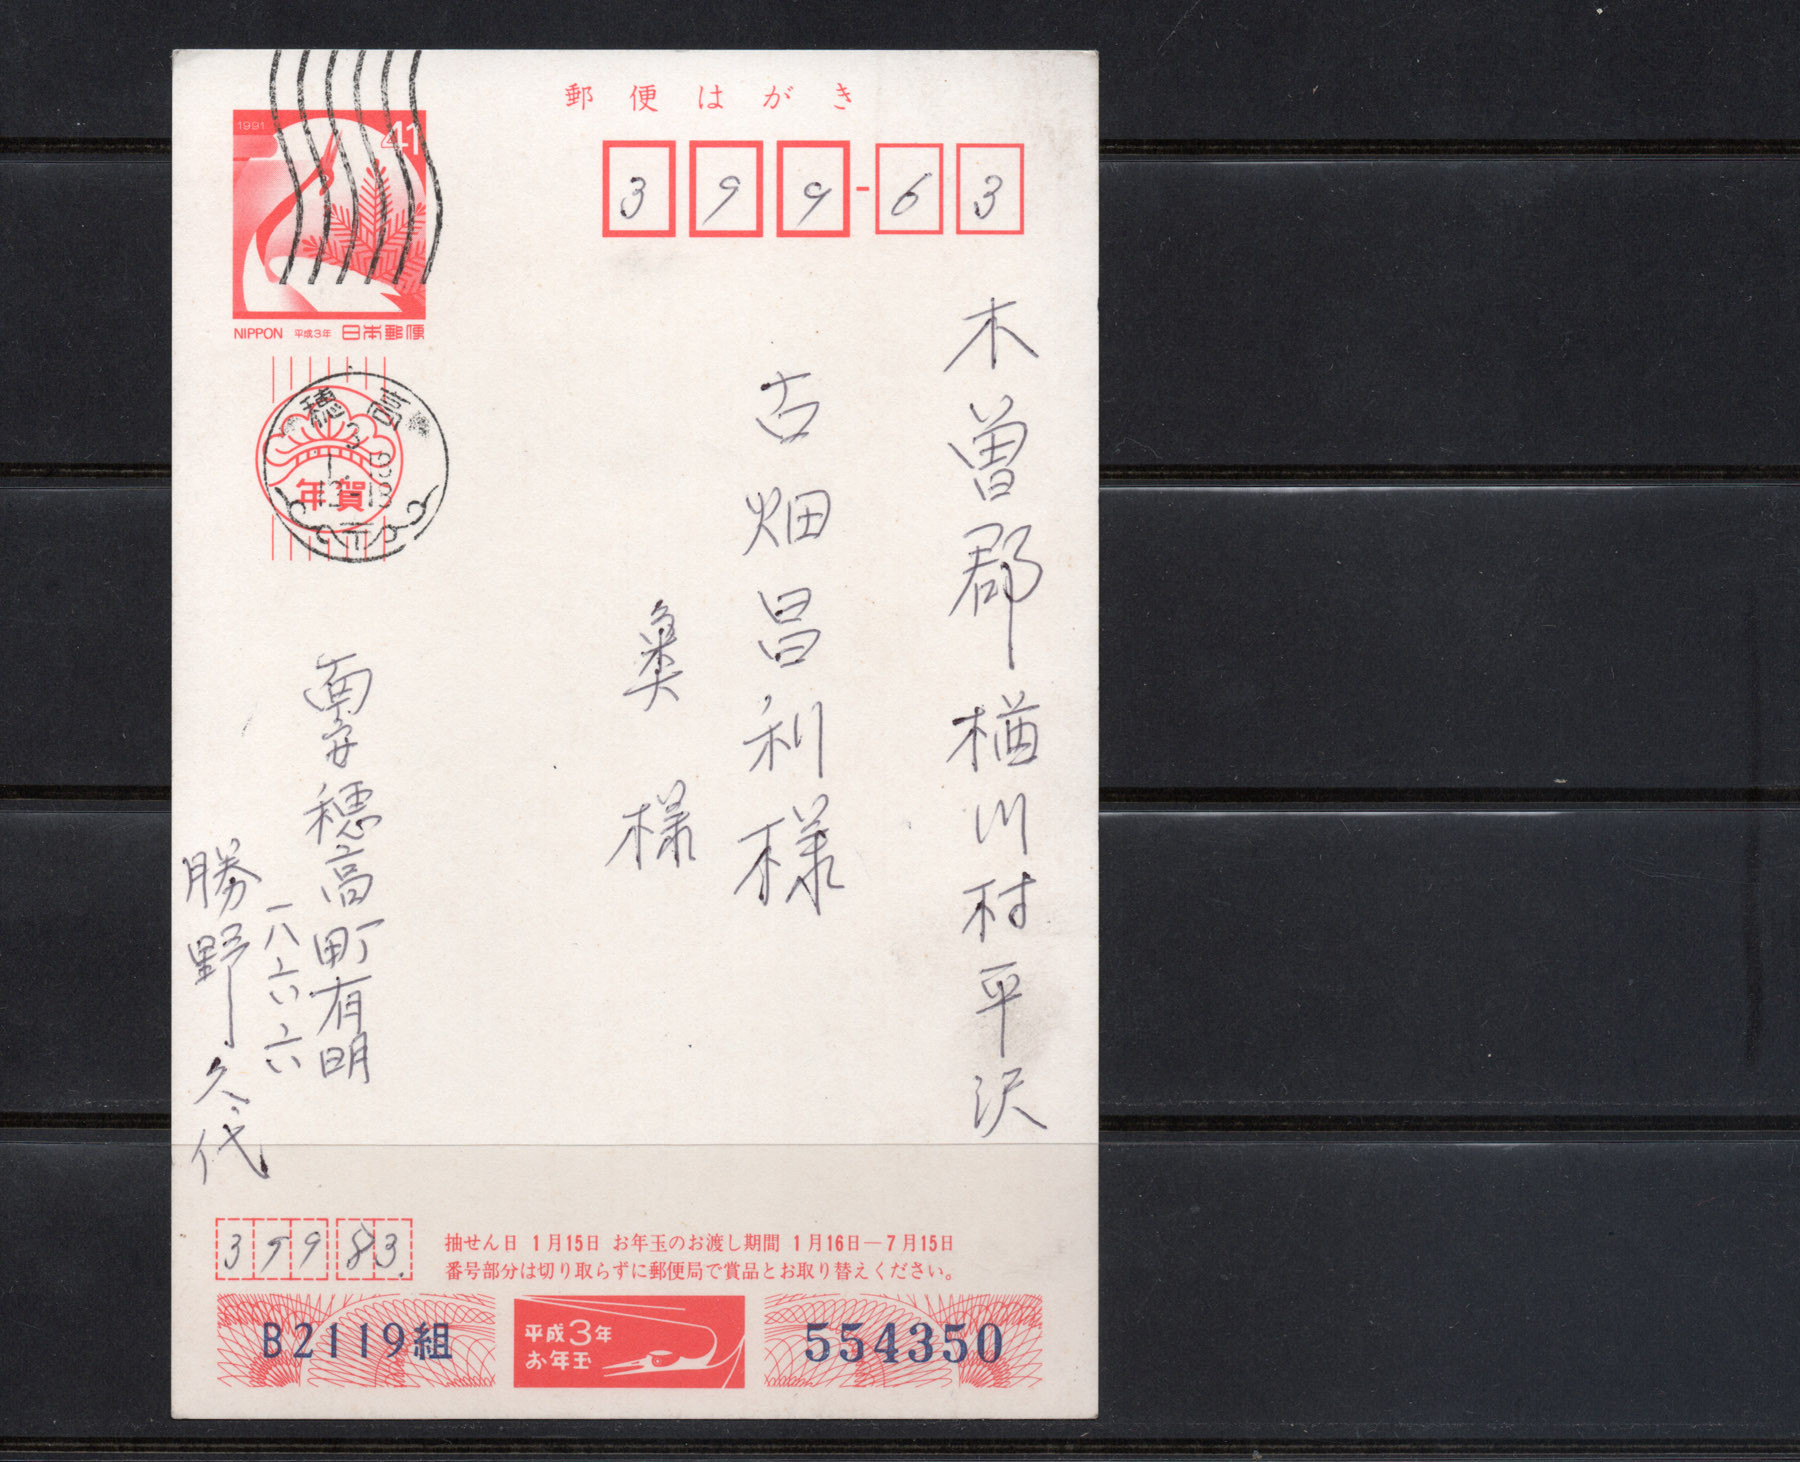 郵便はがき
1991
41
NIPPON 平成3年 日本郵便
399-63
木曽郡楢川村平沢
古畑昌利様
様
穂高
3
1. 9
12-18
年賀
南安穂高町有明
一八六六
勝野久代
399 83
抽せん日 1月15日 お年玉のお渡し期間 1月16日—7月15日
番号部分は切り取らずに郵便局で賞品とお取り替えください。
B2119組
平成3年
お年玉
554350